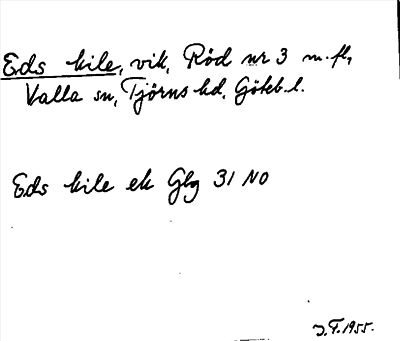 Eds kile, vik, Röd nr 3 m.fl.,
Valla sn, Tjörns hd. Göteb. l.
Eds kile ek Gbg 31 NO
J.F. 1955.